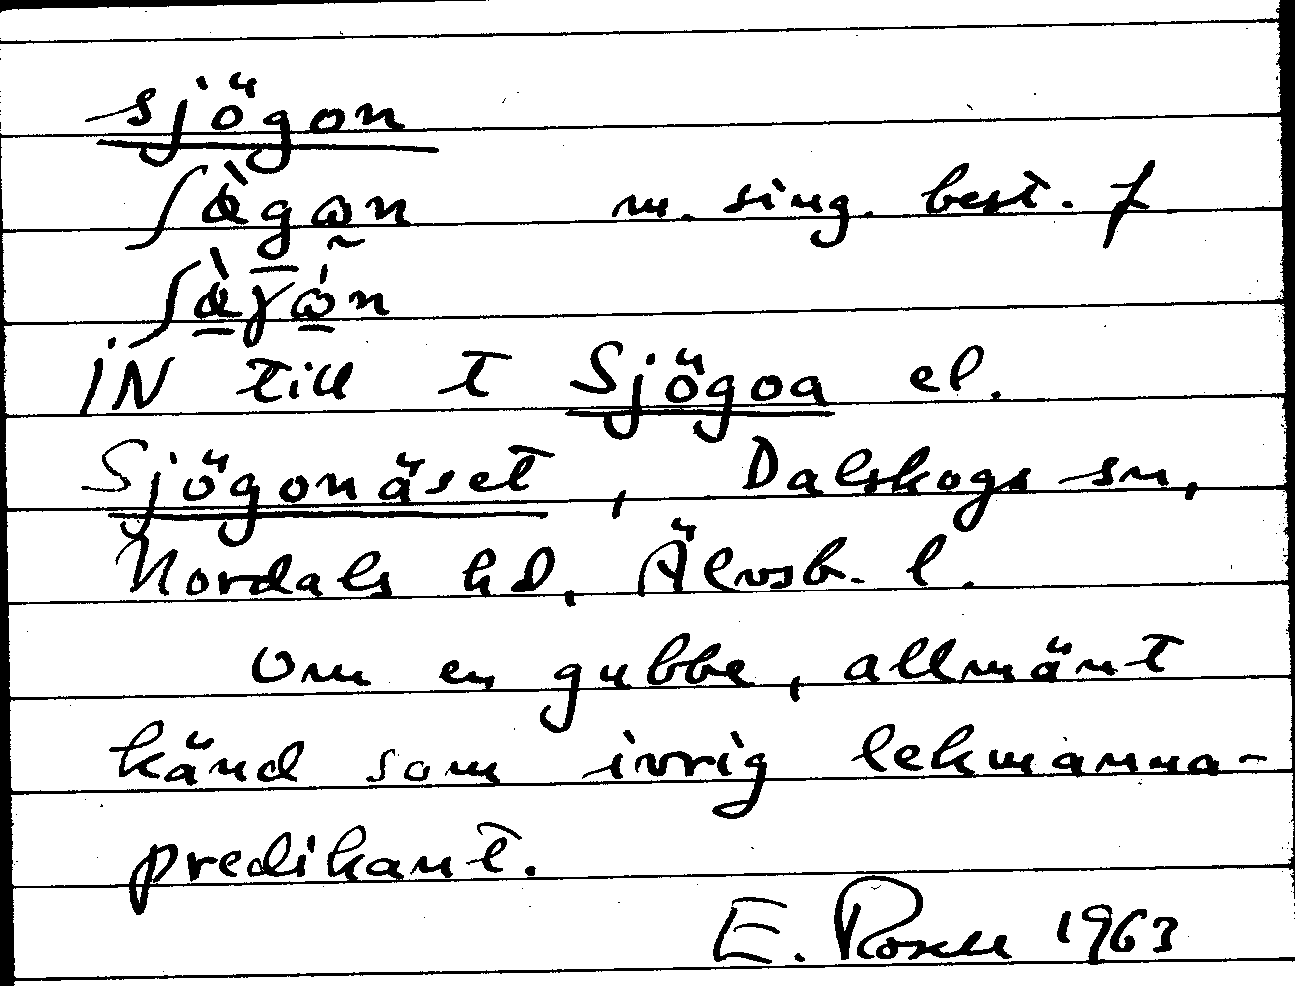 sjögon
m. sing. best. f
IN till t Sjögoa el.
Sjögonäset, Dalskogs sn,
Nordals hd, Älvsb. l.
Om en gubbe, allmänt
känd som ivrig lekmanna-
predikant.
E. Rosell 1963